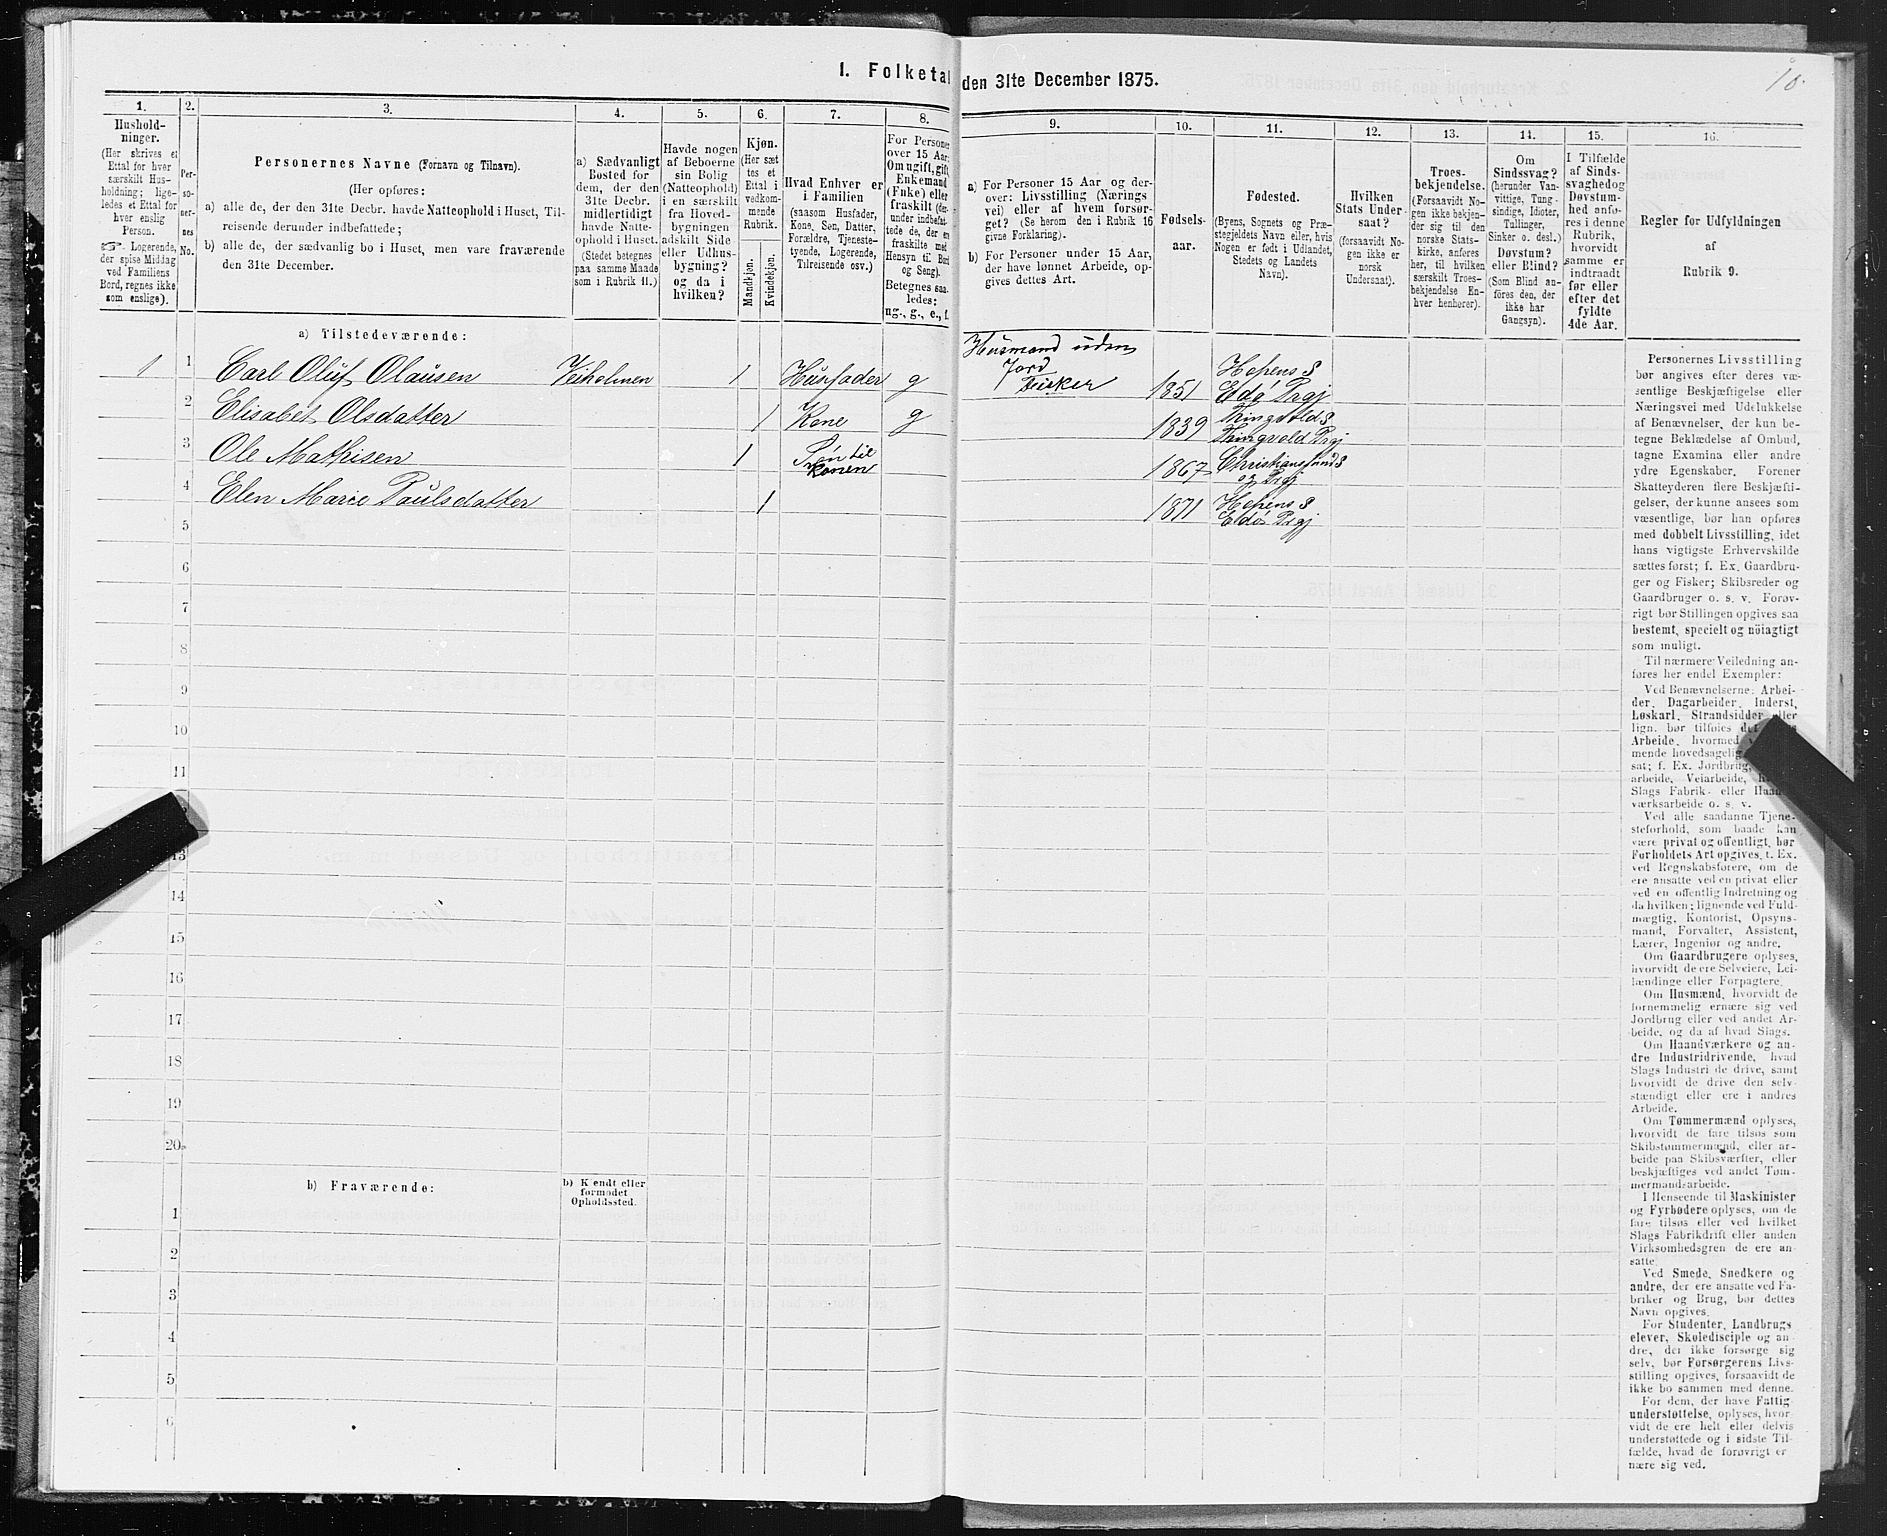 1. Folketal den 31te December 1875.
10.
1.
Hushold-
ninger.
(Her skrives et
Ettal for hver
særskilt Hus-
holdning; lige-
ledes et Ettal for
hver enslig
Person.
☞ Logerende,
der spise Middag
ved Familiens
Bord, regnes ikke
som enslige).
2.
Per-
so-
ner-
nes
No.
3.
Personernes Navne (Fornavn og Tilnavn).
(Her opføres:
a) alle de, der den 31te Decbr. havde Natteophold i Huset, Til-
reisende derunder indbefattede;
b) alle de, der sædvanlig bo i Huset, men vare fraværende
den 31te December.
4.
a) Sædvanligt
Bosted for
dem, der den
31te Decbr.
midlertidigt
havde Natte-
ophold i Huset.
(Stedet betegnes
paa samme Maade
som i Rubrik 11.)
5.
Havde nogen
af Beboerne
sin Bolig
(Natteophold)
i en særskilt
fra Hoved-
bygningen
adskilt Side
eller Udhus-
bygning?
og da i
hvilken?
6.
Kjøn.
(Her sæt
tes et
Ettal i
vedkom-
mende
Rubrik.
Mandkjøn.
Kvindekjøn.
7.
Hvad Enhver er
i Familien
(saasom Husfader,
Kone, Søn, Datter,
Forældre, Tjeneste-
tyende, Logerende,
Tilreisende osv.)
8.
For Personer
over 15 Aar:
Om ugift, gift,
Enkemand
(Enke) eller
fraskilt (der-
under indbefat-
tede de, der ere
fraskilte med
Hensyn til Bord
og Seng).
Betegnes saa-
ledes:
ug., g., e., f.
9.
a) For Personer 15 Aar og der-
over: Livsstilling (Nærings
vei) eller af hvem forsør-
get? (Se herom den i Rubrik 16
givne Forklaring).
b) For Personer under 15 Aar,
der have lønnet Arbeide, op-
gives dettes Art.
10.
Fødsels-
aar.
11.
Fødested.
(Byens, Sognets og Præ-
stegjeldets Navn eller, hvis
Nogen er født i Udlandet,
Stedets og Landets
Navn).
12.
Hvilken
Stats Under
saat?
(forsaavidt No-
gen ikke er
norsk
Undersaat).
13.
Troes-
bekjendelse.
(Forsaavidt No-
gen ikke bekjen-
der sig til den
norske Stats-
kirke, anføres
her, til hvilken
særskilt Troes-
bekjendelse En-
hver henhører).
14.
Om
Sindssvag?
(herunder Van-
vittige, Tung-
sindige, Idioter,
Tullinger,
Sinker o. desl.)
Døvstum?
eller Blind?
(Som Blind an-
føres den, der
ikke har
Gangsyn).
15.
I Tilfælde
af Sinds-
svaghed og
Døvstum-
hed anfø-
res i denne
Rubrik,
hvorvidt
samme er
indtraadt
før eller
efter det
fyldte
4de Aar.
16.
Regler for Udfyldningen
af
Rubrik 9.
a) Tilstedeværende:
1 1 Carl Oluf Olausen Veiholmen 1 Husfader g Husmand uden Jord Fisker 1851 Hopens S Edø Prgj
2 Elisabet Olsdatter 1 Kone g 1839 Thingvolds S Thingvold Prgj
3 Ole Mathisen 1 Søn til Konen 1867 Christianssunds S og Prgj
4 Elen Marie Paulsdatter 1 1871 Hopens S Edø Prgj
5
6
7
8
9
10
11
13
14
15
16
17
18
19
20
b) Fraværende:
b) Kjendt eller
formodet
Opholdssted.
1
2
3
4
5
6
Personernes Livsstilling
bør angives efter deres væ-
sentlige Beskjæftigelse eller
Næringsvei med Udelukkelse
af Benævnelser, der kun be-
tegne Beklædelse af Ombud,
tagne Examina eller andre
ydre Egenskaber. Forener
Skatteyderen flere Beskjæfti-
gelser, der kunne ansees som
væsentlige, bør han opføres
med dobbelt Livsstilling, idet
hans vigtigste Erhvervskilde
sættes først; f. Ex. Gaardbru-
ger og Fisker; Skibsreder og
Gaardbruger o. s. v. Forøv-
rigt bør Stillingen opgives saa
bestemt, specielt og nöiagtigt
som muligt.
Til nærmere Veiledning an-
føres her endel Exempler:
Ved Benævnelserne: Arbei-
der, Dagarbeider, Inderst,
Løskarl, Strandsidder eller
lign. bør tilføies det
Arbeide, hvormed
mende hovedsagelig
sat; f. Ex. Jordbrug,
arbeide, Veiarbeide,
Slags Fabrik- eller Haand-
værksarbeide o. s. v.
Ved alle saadanne Tjene-
steforhold, som baade kan
være privat og offentligt, bør
Forholdets Art opgives, f. Ex.
ved Regnskabsførere, om de
ere ansatte ved en privat eller
ved en offentlig Indretning og
da hvilken; lignende ved Fuld-
mægtig, Kontorist, Opsyns-
mand, Forvalter, Assistent,
Lærer, Ingeniør og andre.
Om Gaardbrugere oplyses,
hvorvidt de ere Selveiere, Lei-
lændinge eller Forpagtere.
Om Husmænd, hvorvidt de
fornemmelig ernære sig ved
Jordbrug eller ved andet Ar-
beide, og da af hvad Slags.
Om Haandværkere og an-
dre Industridrivende, hvad
Slags Industri de drive, samt
hvorvidt de drive den selv-
stændigt eller ere i andres
Arbeide.
Om Tømmermænd oplyses,
hvorvidt de fare tilsøs som
Skibstømmermænd, eller ar-
beide paa Skibsværfter, eller
beskjæftiges ved andet Tøm-
mermandsarbeide.
I Henseende til Maskinister
og Fyrbødere oplyses, om de
fare tilsøs eller ved hvilket
Slags Fabrikdrift eller anden
Virksomhedsgren de ere an-
satte.
Ved Smede, Snedkere og
andre, der ere ansatte ved Fa-
briker og Brug, bør dettes
Navn opgives.
For Studenter, Landbrugs
elever, Skoledisciple og an-
dre, der ikke forsørge sig
selv, bør Forsørgerens Livs-
stilling opgives, forsaavidt de
ikke bo sammen med denne.
For dem, der have Fattig
understøttelse, oplyses, hvor
vidt de ere helt eller delvis
understøttede og i sidste Til-
fælde, hvad de forøvrigt er
nære sig ved.